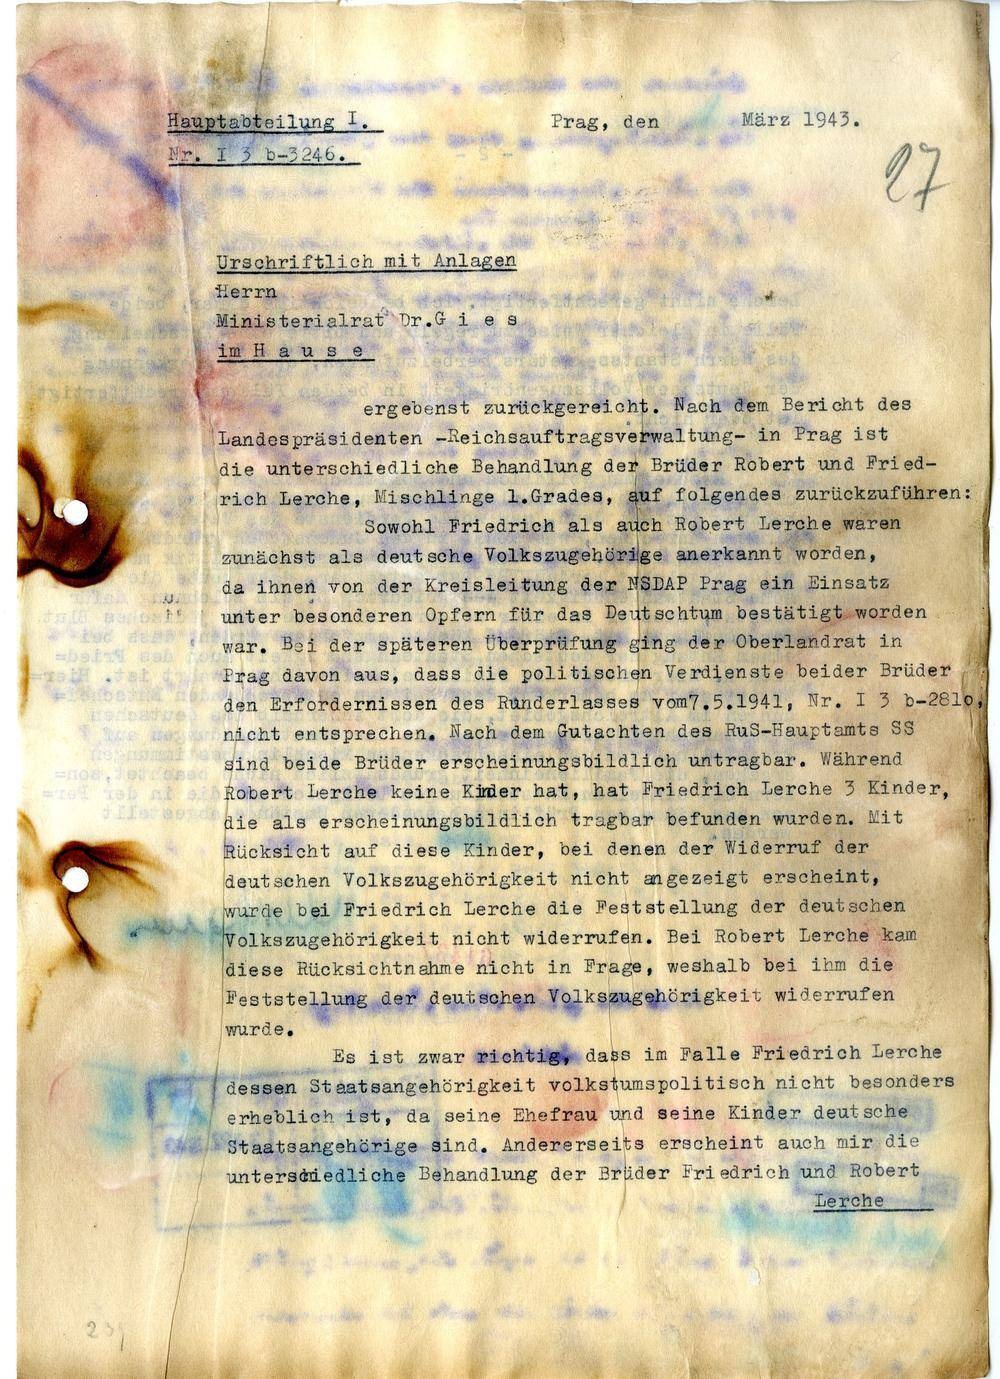 Hauptabteilung I.
Nr. I 3 b-3246.
Prag, den März 1943.
27
Urschriftlich mit Anlagen
Herrn
Ministerialrat Dr.G i e s
im H a u s e
ergebenst zurückgereicht. Nach dem Bericht des
Landespräsidenten -Reichsauftragsverwaltung- in Prag ist
die unterschiedliche Behandlung der Brüder Robert und Fried-
rich Lerche, Mischlinge 1.Grades, auf folgendes zurückzuführen:
Sowohl Friedrich als auch Robert Lerche waren
zunächst als deutsche Volkszugehörige anerkannt worden,
da ihnen von der Kreisleitung der NSDAP Prag ein Einsatz
unter besonderen Opfern für das Deutschtum bestätigt worden
war. Bei der späteren Überprüfung ging der Oberlandrat in
Prag davon aus, dass die politischen Verdienste beider Brüder
den Erfordernissen des Runderlasses vom7.5.1941, Nr. I 3 b-2810,
nicht entsprechen. Nach dem Gutachten des RuS-Hauptamts SS
sind beide Brüder erscheinungsbildlich untragbar. Während
Robert Lerche keine Kinder hat, hat Friedrich Lerche 3 Kinder,
die als erscheinungsbildlich tragbar befunden wurden. Mit
Rücksicht auf diese Kinder, bei denen der Widerruf der
deutschen Volkszugehörigkeit nicht angezeigt erscheint,
wurde bei Friedrich Lerche die Feststellung der deutschen
Volkszugehörigkeit nicht widerrufen. Bei Robert Lerche kam
diese Rücksichtnahme nicht in Frage, weshalb bei ihm die
Feststellung der deutschen Volkszugehörigkeit widerrufen
wurde.
Es ist zwar richtig, dass im Falle Friedrich Lerche
dessen Staatsangehörigkeit volkstumspolitisch nicht besonders
erheblich ist, da seine Ehefrau und seine Kinder deutsche
Staatsangehörige sind. Andererseits erscheint auch mir die
unterschiedliche Behandlung der Brüder Friedrich und Robert
Lerche